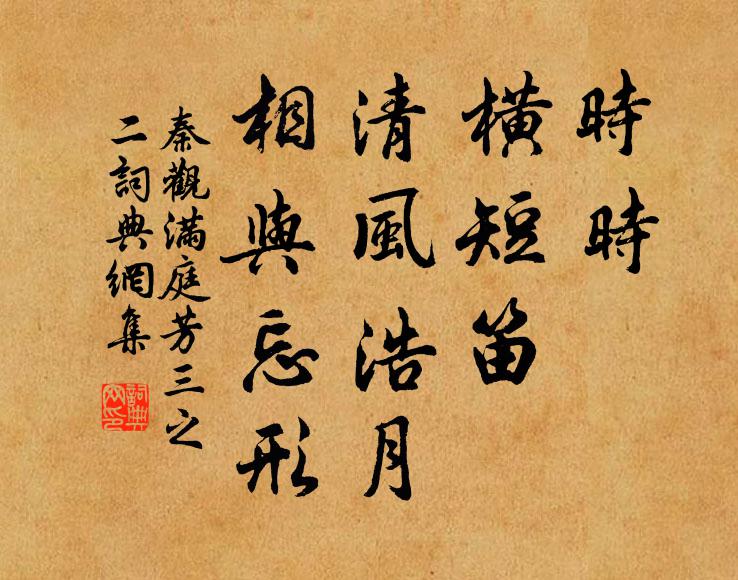 時時
橫短笛
清風浩月
相與忘形
秦觀滿庭芳三之
二詞典網集
詞典網印